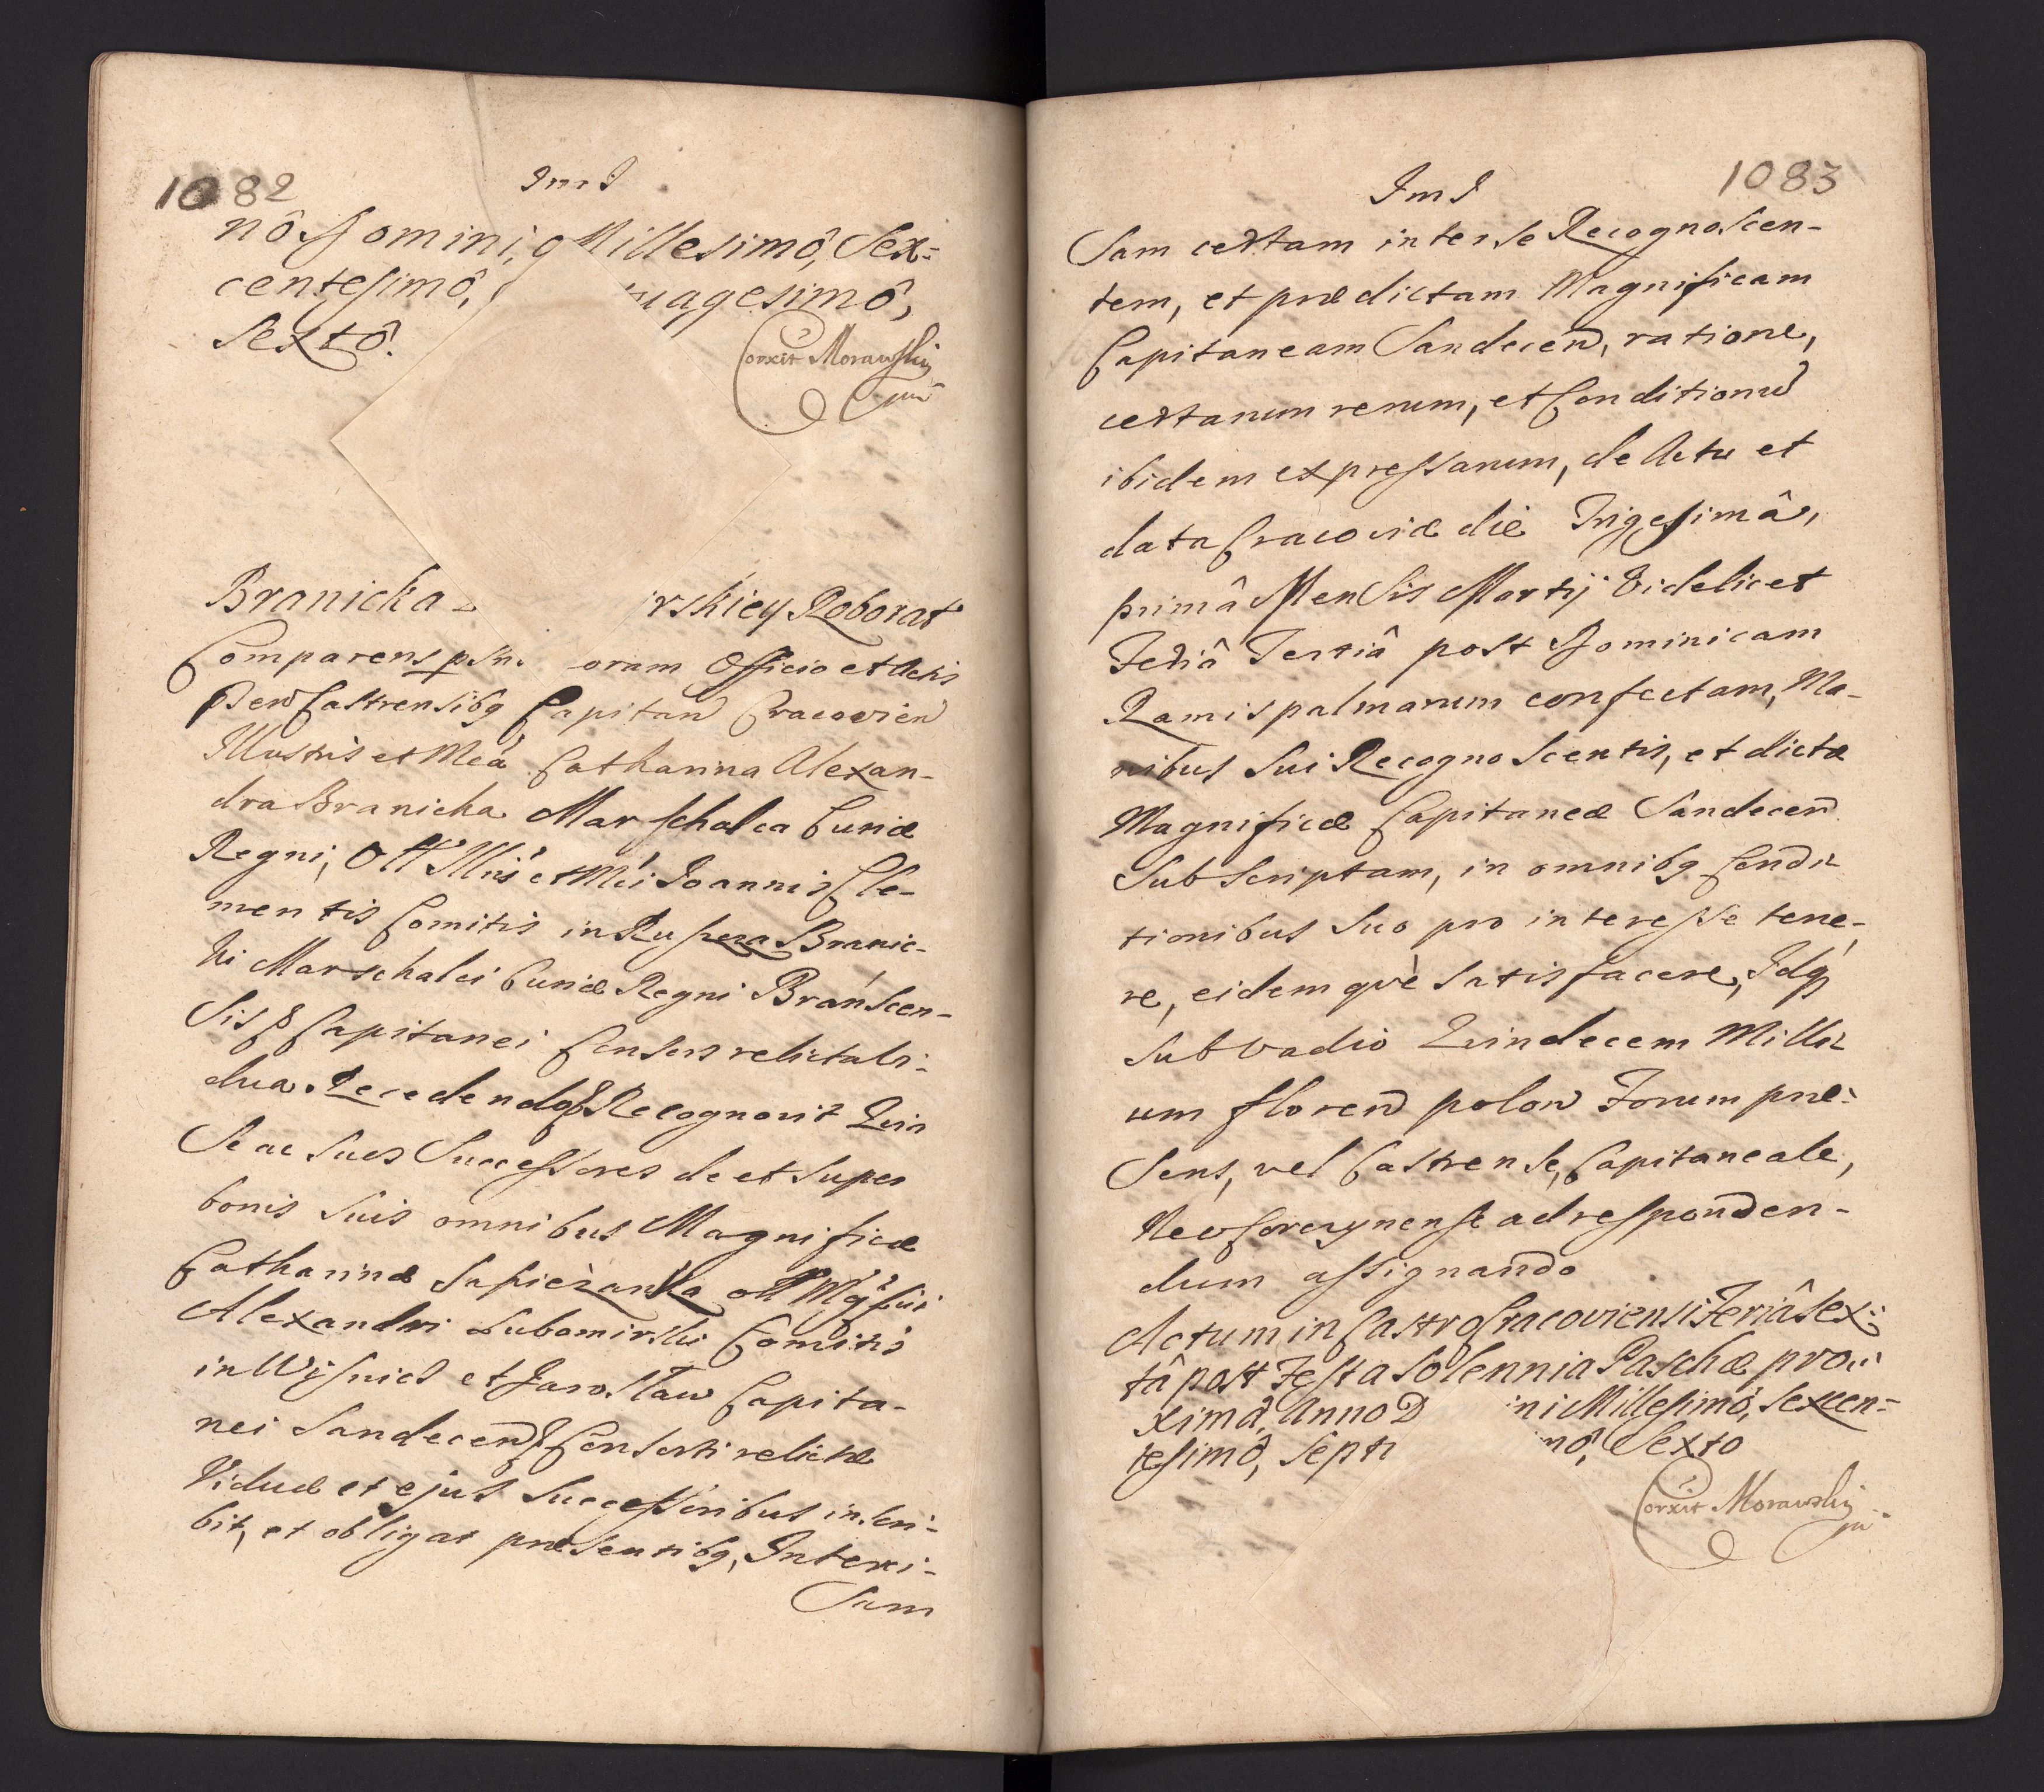 1082
nô Domini, Millesimô, Sex=
centesimô, uagesimô,
Sextô.
Corxit Morawskij
mp
Branicka - irskiey Roborat
Comparens psn oram Officio et Actis
Castrensibg Capitan Cracovien
Illustris et Mca Catharina Alexan-
dra Branicka Marschalca Curiæ
Regni, Olt Illris et Mci Joannis Cle-
mentis Comitis in Ruscza Branic-
ki Marschalci Curiæ Regni Bránscen-
sis & Capitanei Consors relicta Vi-
dua. Recedendo & Recognovit Quia
Se ac Suos Successores de et super
bonis Suis omnibus Magnificæ
Catharinæ Sapiezanka olt Mgfici
Alexandri Lubomirski Comitis
in Wisnicz et Jarosław Capita-
nei Sandecen & Consorti relictæ
Viduæ et ejus Successoribus inscri-
bit, et obligat præsentibg, Interci-
Sam
1083
Sam certam inter se Recognoscen-
tem, et prædictam Magnificam
Capitaneam Sandecen, ratione,
certarum rerum, et Conditionu
ibidem expressarum, de Actu et
data Cracoviæ die Trigesimâ,
primâ Mensis Martij Videlicet
Feriâ Tertiâ post Dominicam
Ramis palmarum confectam, Ma-
nibus Sui Recognoscentis, et dictæ
Magnificæ Capitaneæ Sandecen
Subscriptam, in omnibg Condi-
tionibus Suo pro interesse tene-
re, eidemque satisfacere, Idq
sub vadio Quindecem Milli-
um floren polon Forum præ-
sens, vel Castrense, Capitaneale,
Neoforczynense ad responden-
dum assignando
Actum in Castro Cracoviensi Feriâ Sex=
tâ post Festa Solennia Paschæ pro=
ximâ, Anno D ini Millesimô, Sexcen=
tesimô, Septu mô, Sexto
Corxit Morawskij
mp